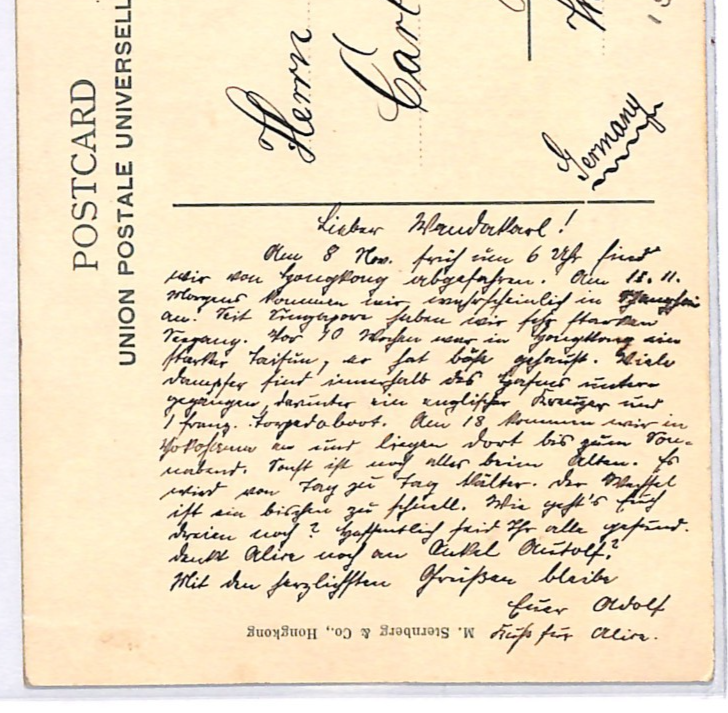 POSTCARD
UNION POSTALE UNIVERSELL
Herrn
Carl
Germany
Lieber Wandakarl!
Am 8 Nov. früh um 6 Uhr sind
wir von Hongkong abgefahren. Am 11.
Morgens kommen wir wahrscheinlich in Shanghai
an. Seit Singapore haben wir sehr starken
Seegang. Vor 10 Wochen war in Hongkong ein
starker Taifun, er hat böse gehaust. Viele
Dampfer sind innerhalb des Hafens unter-
gegangen, darunter ein englischer Kreuzer und
1 franz. Torpedoboot. Am 18 kommen wir in
Yokohama an und liegen dort bis zum Son-
nabend. Sonst ist noch alles beim Alten. Es
wird von Tag zu Tag kälter. Der Wechsel
ist ein bischen zu schnell. Wie geht's Euch
dreien noch? Hoffentlich seid Ihr alle gesund.
denkt Alice noch an Onkel
Mit den herzlichsten Grüßen bleibe
Euer Adolf
Kuß für Alice.
M. Sternberg & Co., Hongkong